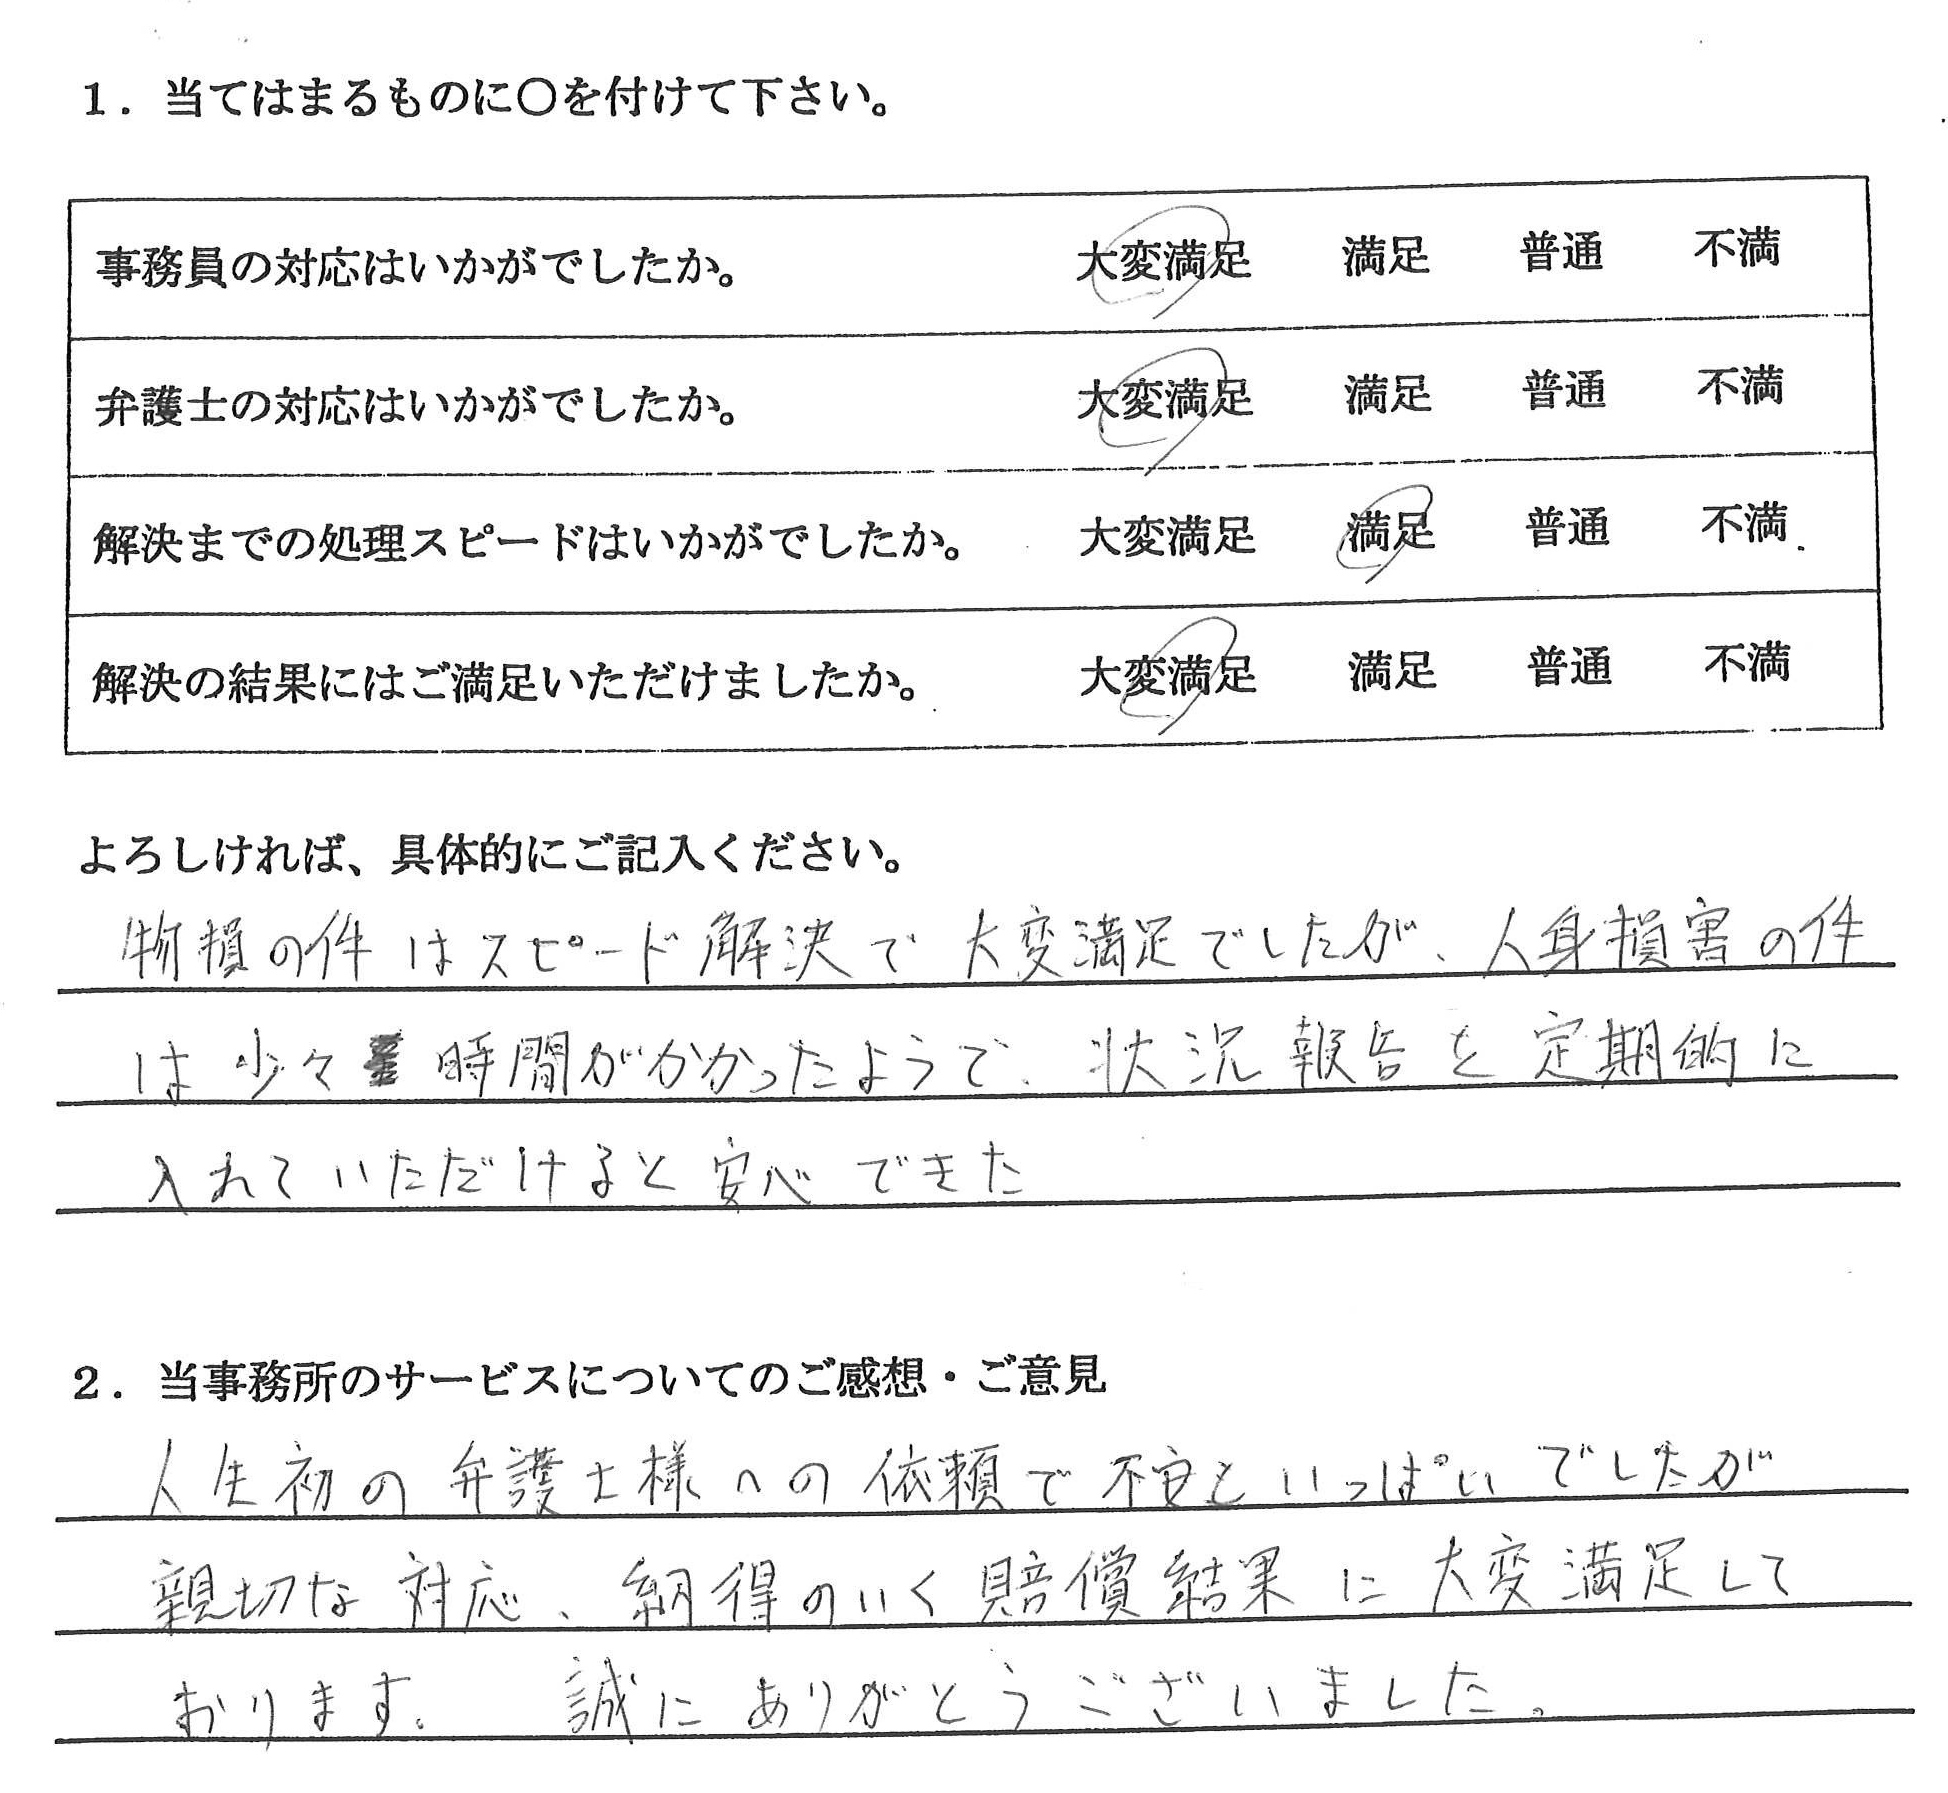 1．当てはまるものに〇を付けて下さい。
事務員の対応はいかがでしたか。 大変満足 満足 普通 不満
弁護士の対応はいかがでしたか。 大変満足 満足 普通 不満
解決までの処理スピードはいかがでしたか。 大変満足 満足 普通 不満
解決の結果にはご満足いただけましたか。 大変満足 満足 普通 不満
よろしければ、具体的にご記入ください。
物損の件はスピード解決で大変満足でしたが、人身損害の件
は少々時間がかかったようで、状況報告を定期的に
入れていただけると安心できた
2．当事務所のサービスについてのご感想・ご意見
人生初の弁護士様への依頼で不安といっぱいでしたが
親切な対応、納得のいく賠償結果に大変満足して
おります。 誠にありがとうございました。